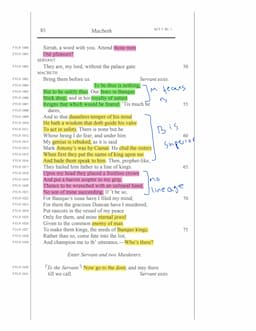 85 Macbeth ACT 3. SC. 1
FTLN 1000 Sirrah, a word with you. Attend those men
FTLN 1001 Our pleasure?
SERVANT
FTLN 1002 They are, my lord, without the palace gate. 50
MACBETH
FTLN 1003 Bring them before us. Servant exits.
FTLN 1004 To be thus is nothing,
FTLN 1005 But to be safely thus. Our fears in Banquo
FTLN 1006 Stick deep, and in his royalty of nature
FTLN 1007 Reigns that which would be feared. 'Tis much he 55
dares,
FTLN 1008 And to that dauntless temper of his mind
FTLN 1009 He hath a wisdom that doth guide his valor
FTLN 1010 To act in safety. There is none but he
FTLN 1011 Whose being I do fear; and under him 60
FTLN 1012 My genius is rebuked, as it is said
FTLN 1013 Mark Antony's was by Caesar. He chid the sisters
FTLN 1014 When first they put the name of king upon me
FTLN 1015 And bade them speak to him. Then, prophet-like,
FTLN 1016 They hailed him father to a line of kings. 65
FTLN 1017 Upon my head they placed a fruitless crown
FTLN 1018 And put a barren scepter in my grip,
FTLN 1019 Thence to be wrenched with an unlineal hand,
FTLN 1020 No son of mine succeeding. If 't be so,
FTLN 1021 For Banquo's issue have I filed my mind; 70
FTLN 1022 For them the gracious Duncan have I murdered,
FTLN 1023 Put rancors in the vessel of my peace
FTLN 1024 Only for them, and mine eternal jewel
FTLN 1025 Given to the common enemy of man
FTLN 1026 To make them kings, the seeds of Banquo kings. 75
FTLN 1027 Rather than so, come fate into the list,
FTLN 1028 And champion me to th' utterance.—Who's there?
Enter Servant and two Murderers.
FTLN 1029 To the Servant. Now go to the door, and stay there
FTLN 1030 till we call. Servant exits.
M fears
B
B is
superior
no
lineage